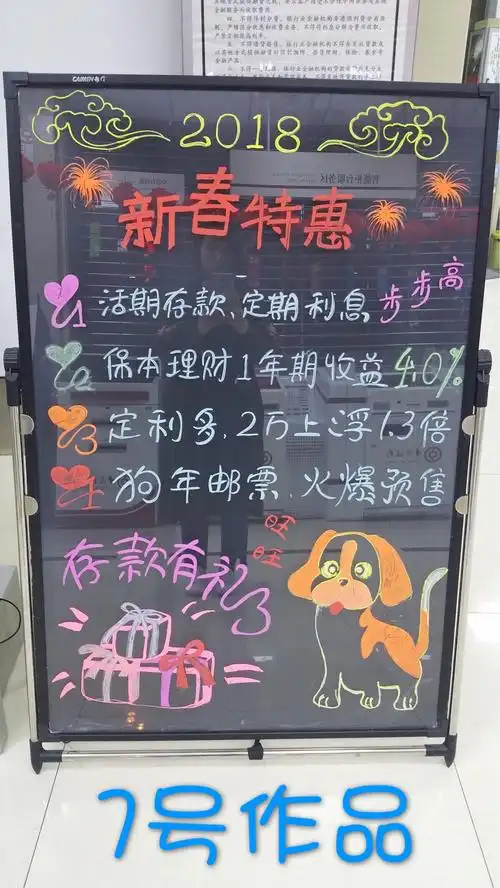 2018
新春特惠
1 活期存款、定期利息步步高
2 保本理财1年期收益4.0%
3 定利多,2万上浮1.3倍
4 狗年邮票、火爆预售
旺
旺
存款有礼
7号作品